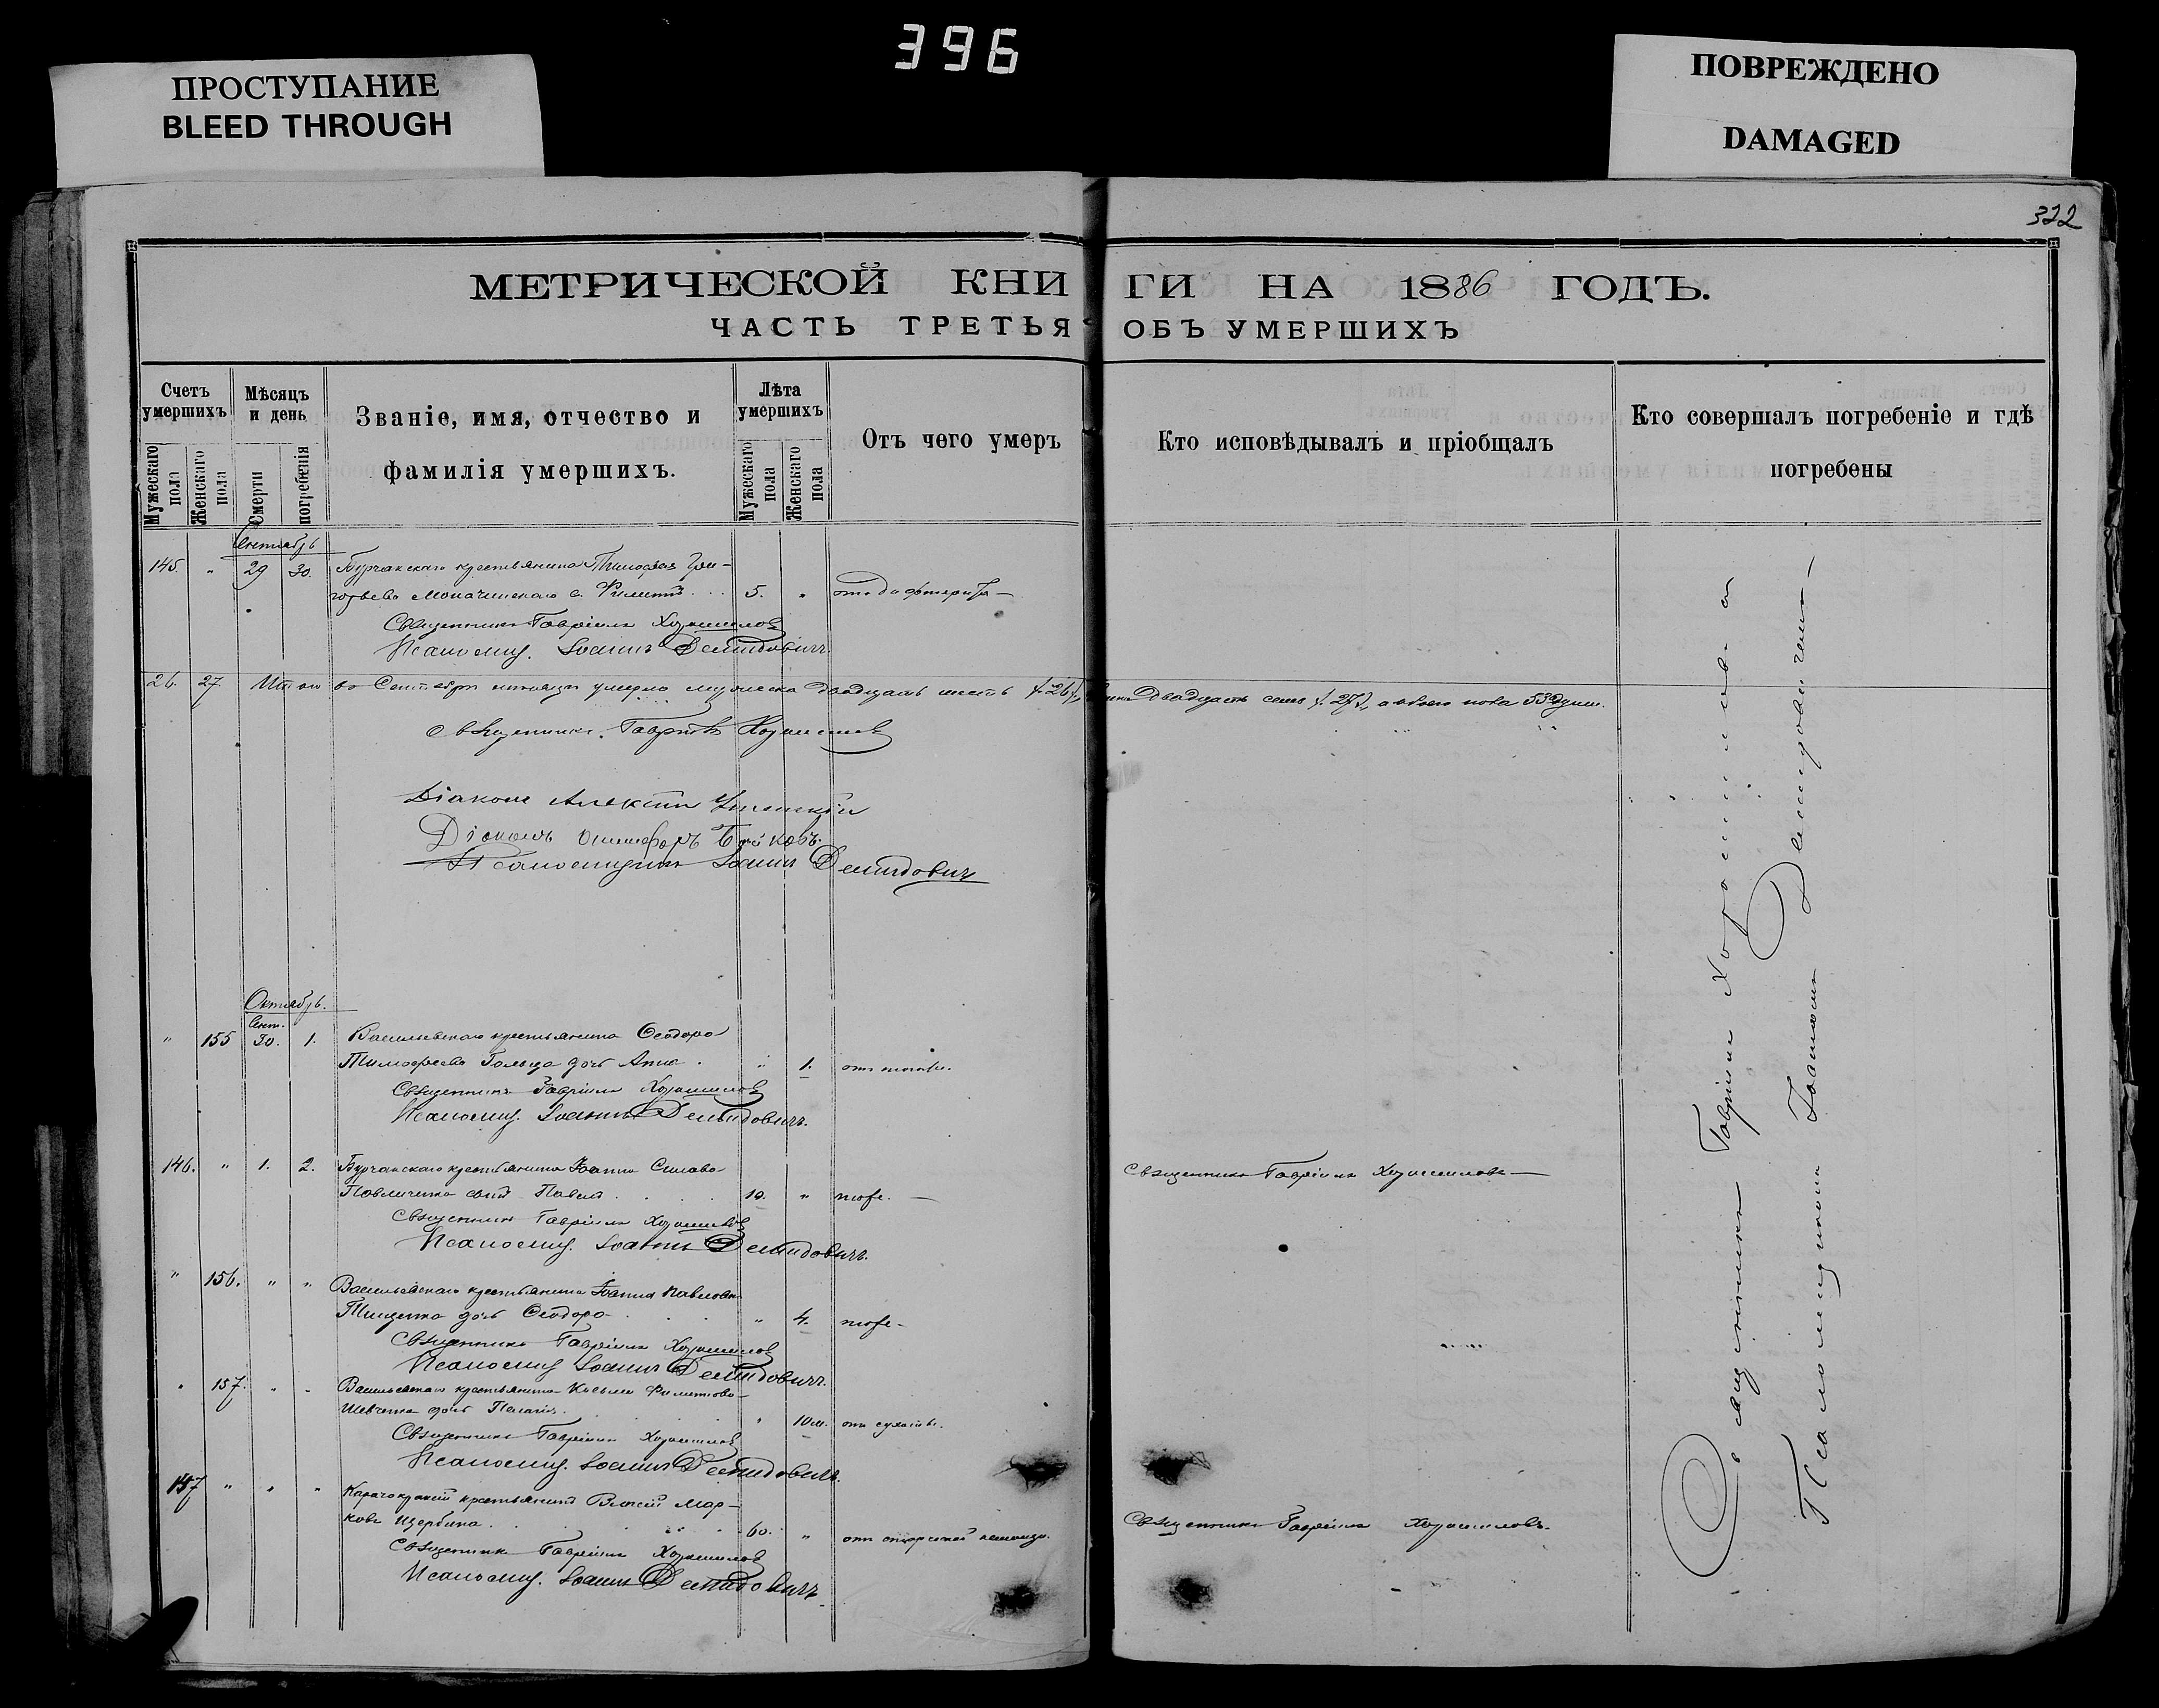 396
ПРОСТУПАНИЕ
BLEED THROUGH
ПОВРЕЖДЕНО
DAMAGED
322
МЕТРИЧЕСКОЙ КНИГИ НА 1886 ГОДЪ.
ЧАСТЬ ТРЕТЬЯ ОБЪ УМЕРШИХЪ
Счетъ умершихъ
Мужескаго пола
Женскаго пола
Мѣсяцъ и день
Смерти
погребенія
Званіе, имя, отчество и фамилія умершихъ.
Лѣта умершихъ
Мужескаго пола
Женскаго пола
Отъ чего умеръ
Кто исповѣдывалъ и пріобщалъ
Кто совершалъ погребеніе и гдѣ погребены
Сентябрь
145. " 29 30. Бурчакскаго крестьянина Тимофея Гри-
горьева с. Филиппъ 5. " отъ дифтерита
Священникъ Гавріилъ Хорошиловъ
Псаломщ. Іоаннъ Демидовичъ.
26. 27. Итого въ Сентябрѣ мѣсяцѣ умерло мужеска двадцать шесть /:26:/, двадцать семь /:27:/, а обоего пола 53 души.
Священникъ Гавріилъ Хорошиловъ
Діаконъ Алексій
Діаконъ Онисифоръ
Псаломщикъ Іоаннъ Демидовичъ
Октябрь.
Сент.
" 155 30. 1. Васильевскаго крестьянина Ѳеодора
Тимофеева дочь Анна. " 1. отъ
Священникъ Гавріилъ Хорошиловъ
Псаломщ. Іоаннъ Демидовичъ.
146. " 1. 2. Бурчакскаго крестьянина Іоанна
Павличенка сынъ Павелъ 10. " тоже. Священникъ Гавріилъ Хорошиловъ
Священникъ Гавріилъ Хорошиловъ
Псаломщ. Іоаннъ Демидовичъ.
" 156. " " Васильевскаго крестьянина Іоанна Павлова
Тищенка дочь Ѳеодора " 4. тоже
Священникъ Гавріилъ Хорошиловъ
Псаломщ. Іоаннъ Демидовичъ.
" 157. " " Васильевскаго крестьянина Косьмы Филиппова
Шевченка дочь Пелагія " 10 м. отъ
Священникъ Гавріилъ Хорошиловъ
Псаломщ. Іоаннъ Демидовичъ.
147 " " " крестьянинъ Власій Мар-
ковъ Щербина 60. " отъ Священникъ Гавріилъ Хорошиловъ.
Священникъ Гавріилъ Хорошиловъ
Псаломщ. Іоаннъ Демидовичъ.
Священникъ Гавріилъ Хорошиловъ и
Псаломщикъ Іоаннъ Демидовичъ